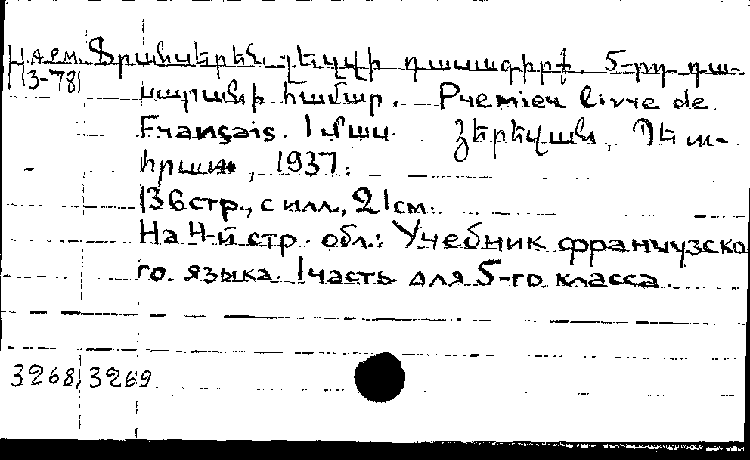 Н.АРМ. Ֆրանսերեն լեզվի դասագիրք. 5-րդ դա-
3-78
սարանի համար. Premier livre de
Français. I մաս Յերեվան, Պետ-
հրատ, 1937.
136 стр., с илл., 21 см.
На 4-й стр. обл.: Учебник французско
го языка. I часть для 5-го класса.
3268, 3269